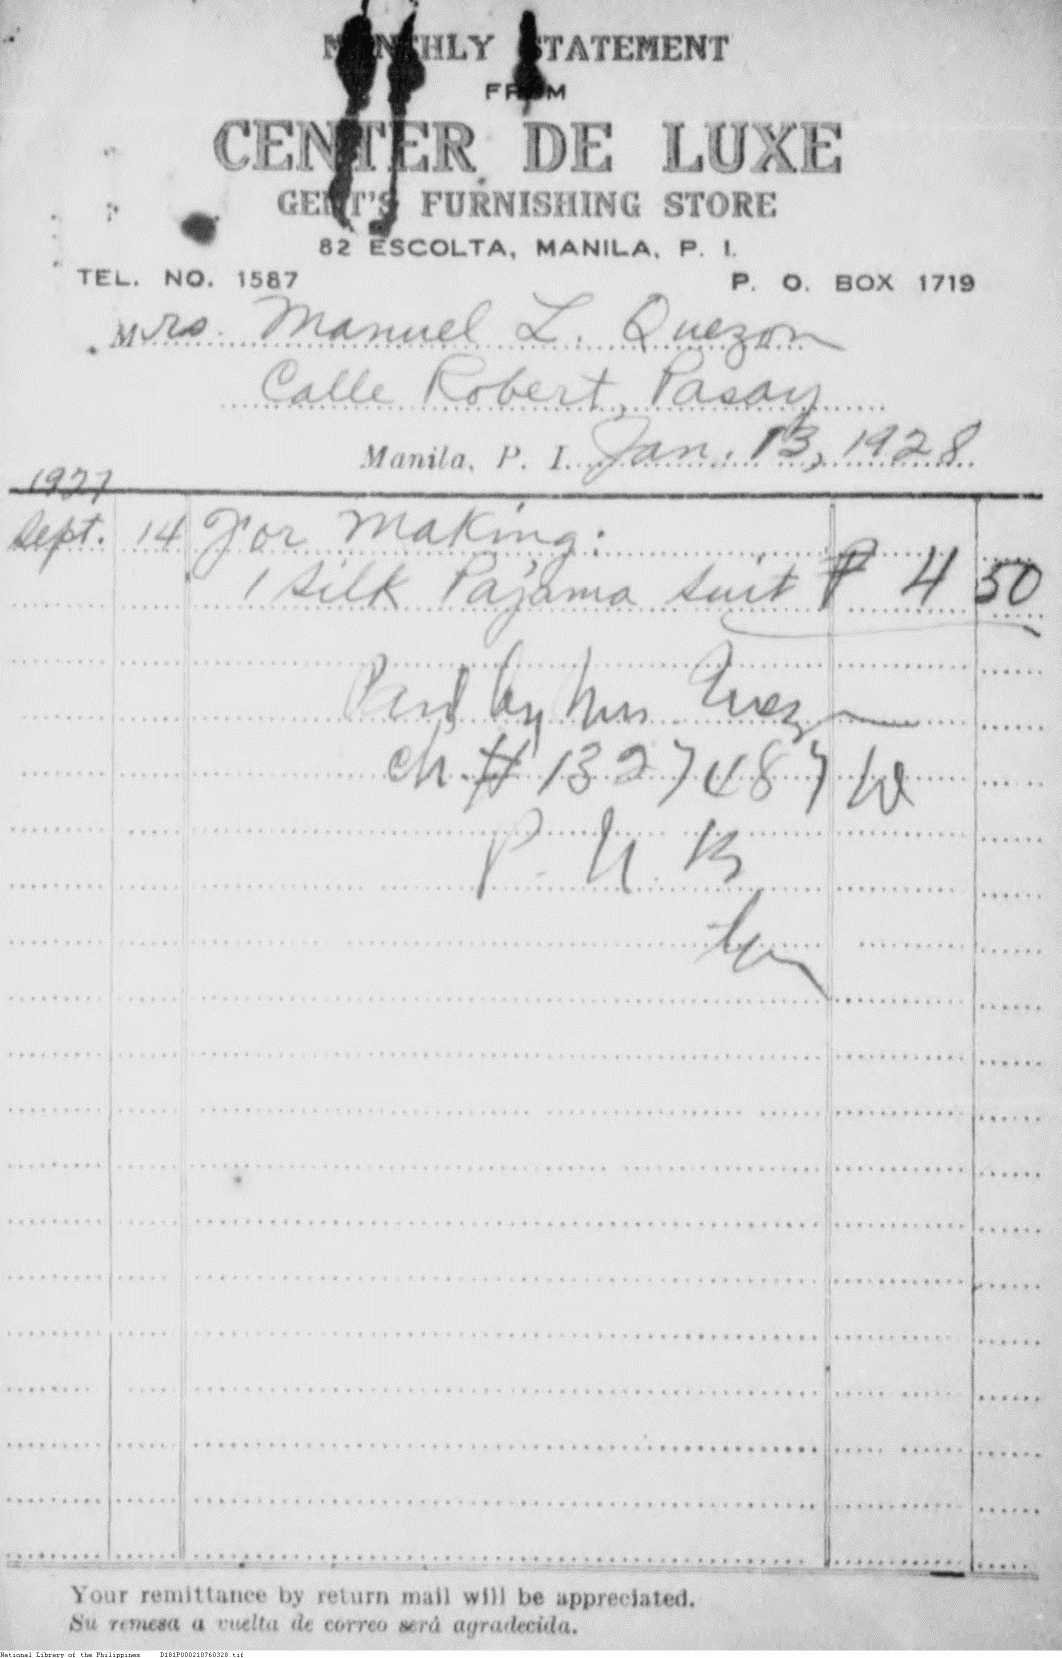 MONTHLY STATEMENT
FROM
CENTER DE LUXE
GENT'S FURNISHING STORE
82 ESCOLTA, MANILA, P. I.
TEL. NO. 1587 P. O. BOX 1719
Mrs. Manuel L. Quezon
Calle Robert, Pasay
Manila, P. I. Jan. 13, 1928
1927
Sept. 14 For Making:
1 Silk Pajama suit ₱ 4 50
Paid by Mrs. Quezon
ch. # 1327487 W
P. N. B.
Your remittance by return mail will be appreciated.
Su remesa a vuelta de correo será agradecida.
National Library of the Philippines D181P000210760320.tif